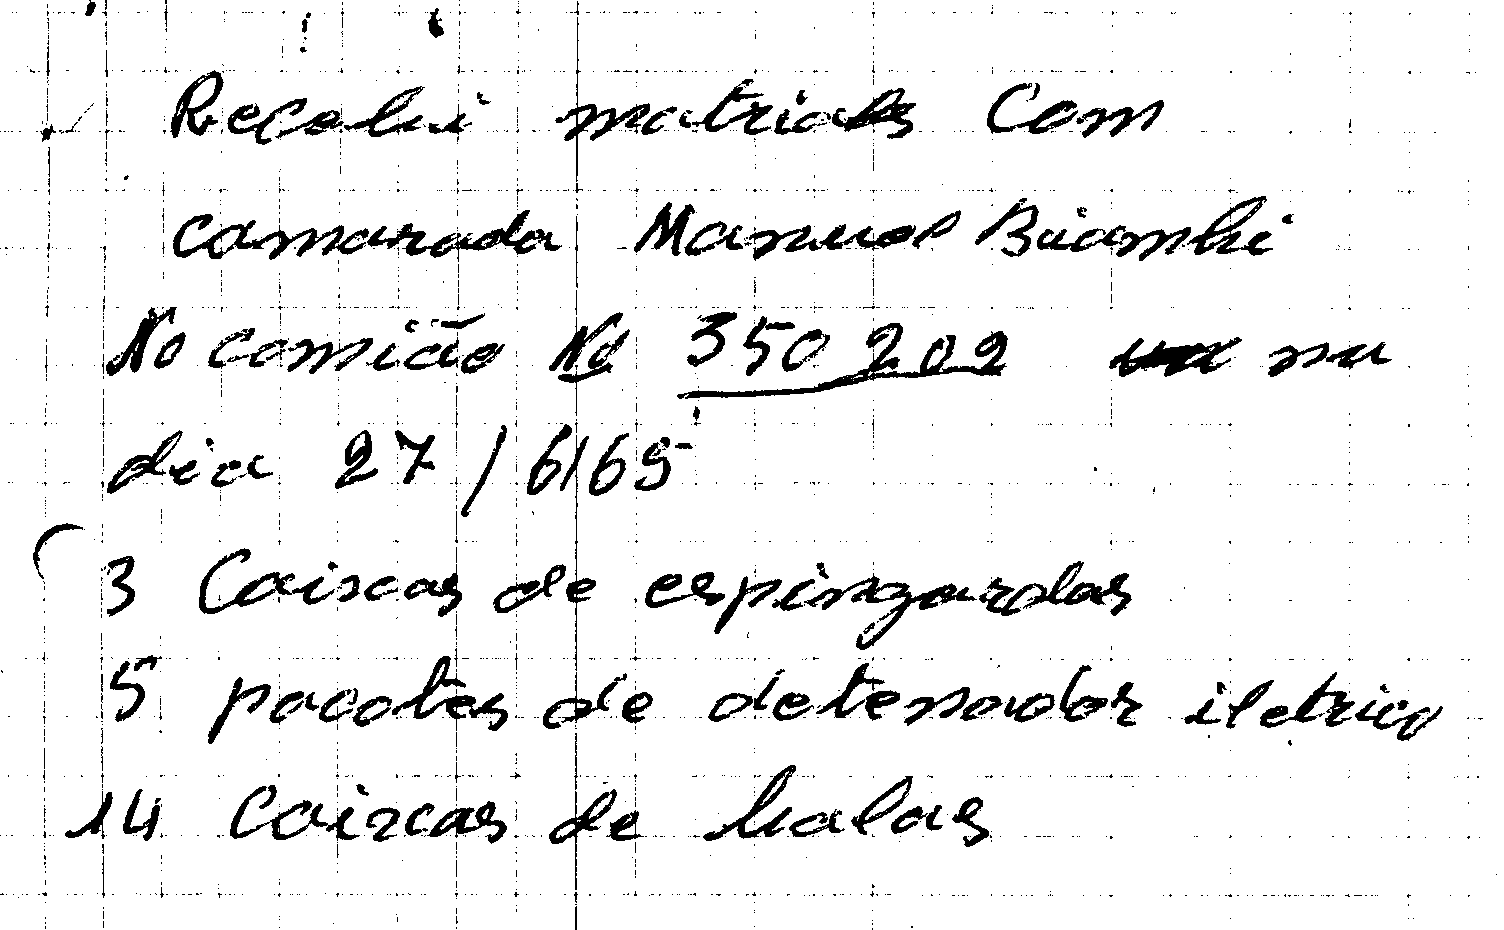 Recebi matriais Com
camarada Manuel Biambi
No camião No 350 202 nu
dia 27/6/65
3 Caixas de espingardas
5 pacotes de detenador iletrico
14 Caixas de balas